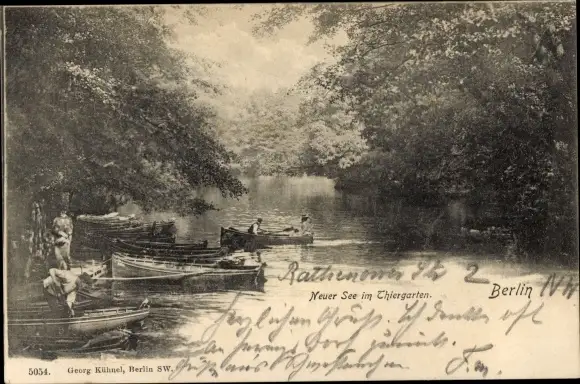 Berlin
Rathenower Str 2 Berlin NW
Neuer See im Thiergarten.
Herzlichen Gruß. Ich denke oft
an gern doch zurück.
Grüße aus
5054. Georg Kühnel, Berlin SW.